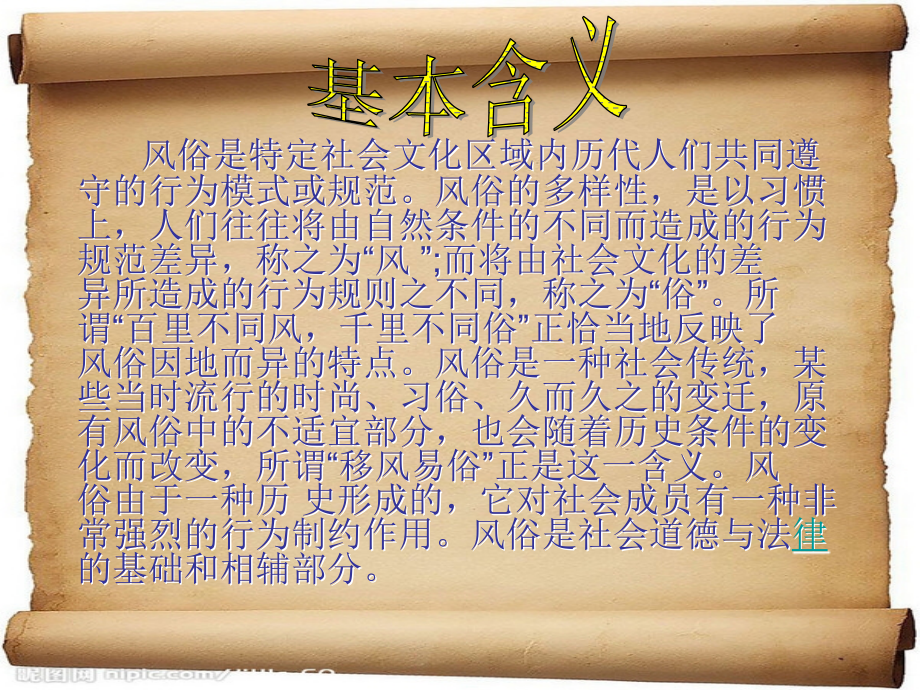 基本含义
风俗是特定社会文化区域内历代人们共同遵
守的行为模式或规范。风俗的多样性，是以习惯
上，人们往往将由自然条件的不同而造成的行为
规范差异，称之为“风 ”;而将由社会文化的差
异所造成的行为规则之不同，称之为“俗”。所
谓“百里不同风，千里不同俗”正恰当地反映了
风俗因地而异的特点。风俗是一种社会传统，某
些当时流行的时尚、习俗、久而久之的变迁，原
有风俗中的不适宜部分，也会随着历史条件的变
化而改变，所谓“移风易俗”正是这一含义。风
俗由于一种历 史形成的，它对社会成员有一种非
常强烈的行为制约作用。风俗是社会道德与法律
的基础和相辅部分。
昵图网 nipic.com/